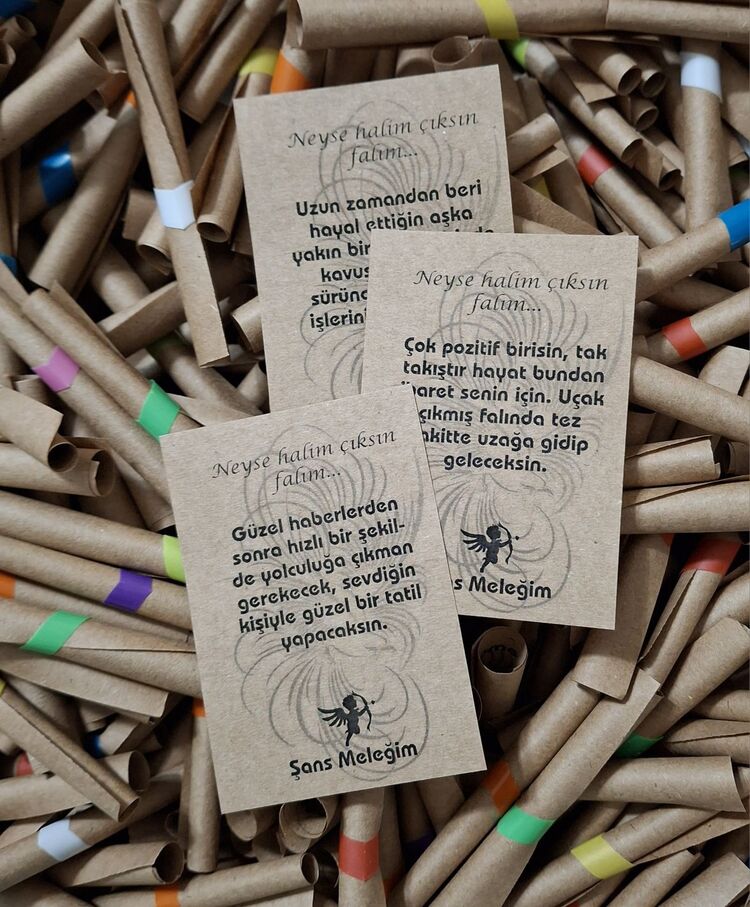 Neyse halim çıksın
falım...
Uzun zamandan beri
hayal ettiğin aşka
yakın bir
işlerini
Neyse halim çıksın
falım...
Çok pozitif birisin, tak
takıştır hayat bundan
senin için. Uçak
falında tez
uzağa gidip
geleceksin.
Meleğim
Neyse halim çıksın
falım...
Güzel haberlerden
sonra hızlı bir şekil-
de yolculuğa çıkman
gerekecek, sevdiğin
kişiyle güzel bir tatil
yapacaksın.
Şans Meleğim